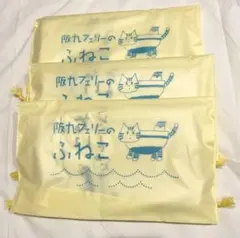 阪九フェリーの
ふねこ
阪九フェリーの
ふねこ
阪九フェリーの
ふねこ